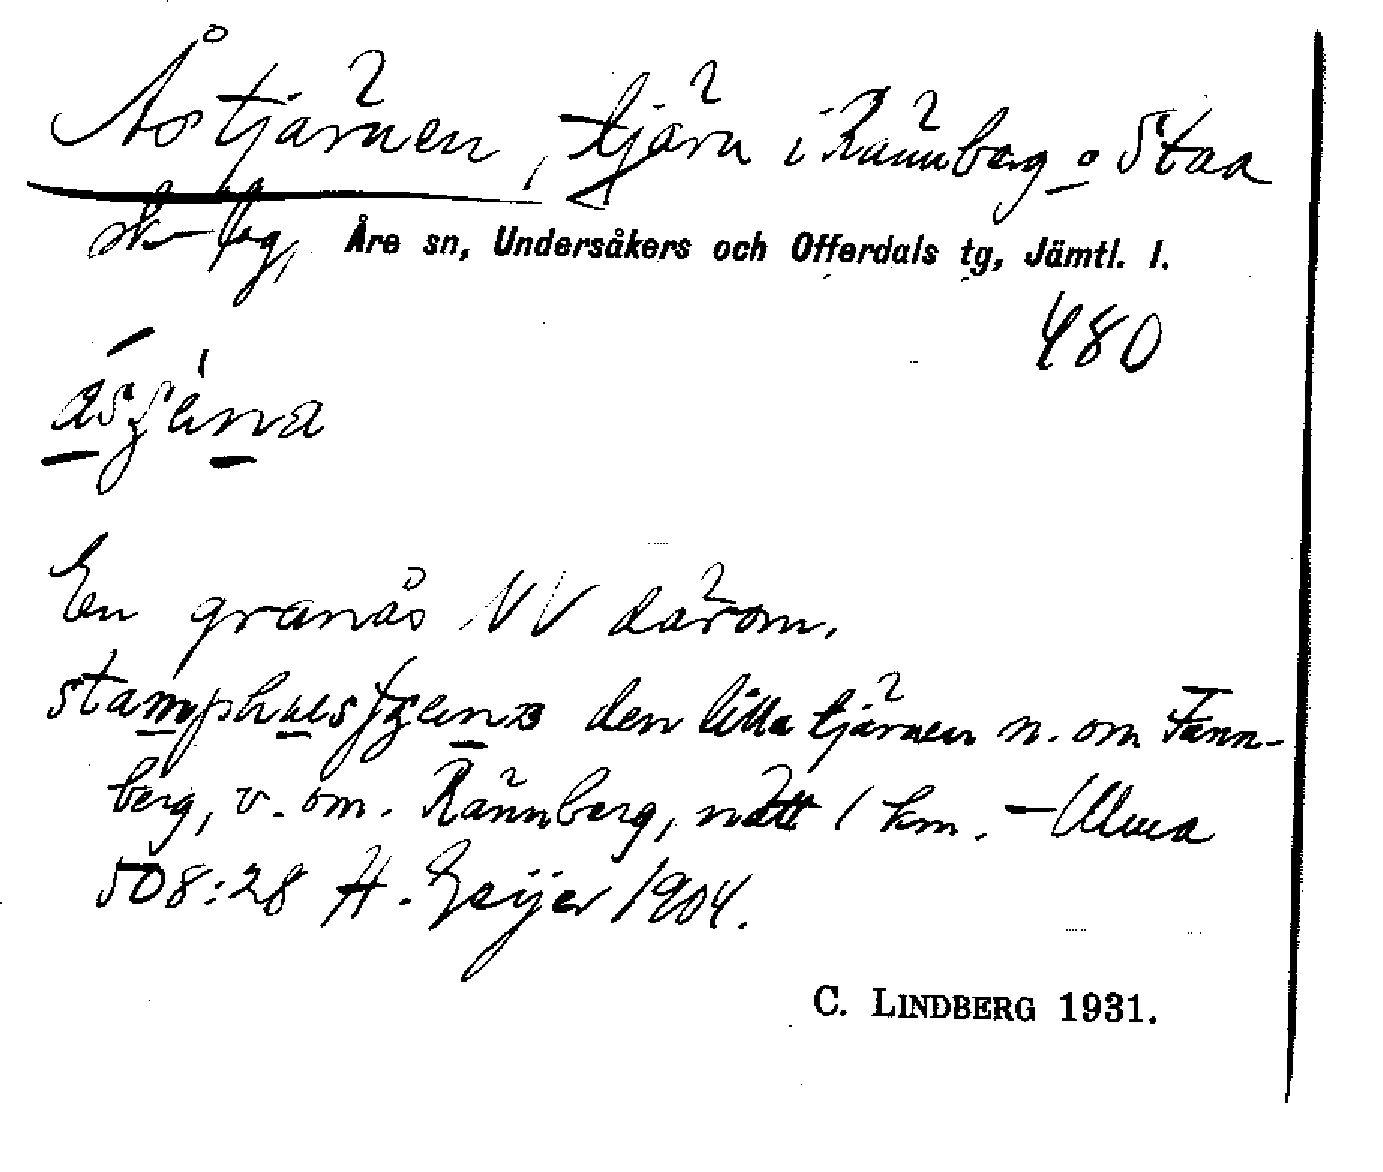 Åstjärnen, tjärn i Rännberg o Staa
sk fg, Åre sn, Undersåkers och Offerdals tg, Jämtl. l.
480
En granås NV därom.
den lilla tjärnen n. om Fann-
berg, v. om. Rännberg, nätt 1 km. – Ulma
508:28 H. Geijer 1904.
C. LINDBERG 1931.